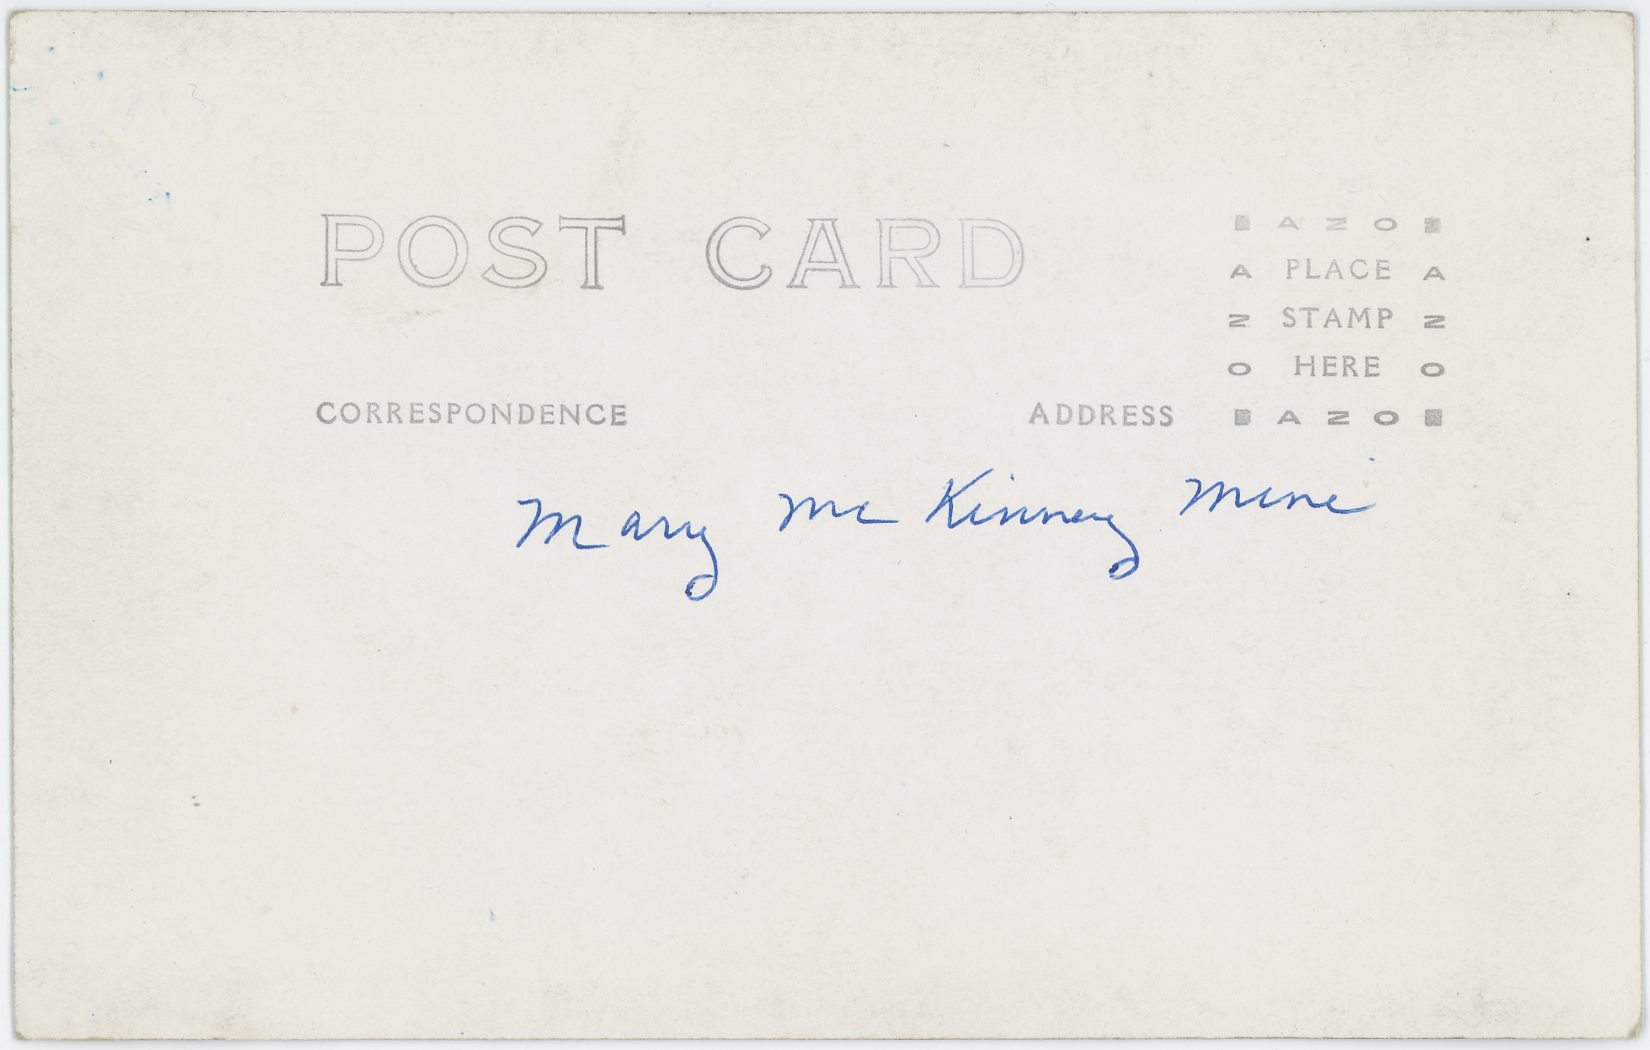 POST CARD
AZO
A PLACE A
Z STAMP Z
O HERE O
CORRESPONDENCE
ADDRESS
AZO
Mary McKinney Mine